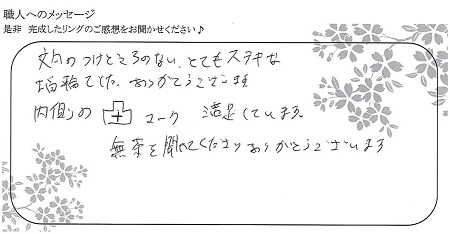 職人へのメッセージ
是非 完成したリングのご感想をお聞かせください♪
文句のつけどころのない、とてもステキな
指輪でした。ありがとうございます
内側の マーク 満足しています。
無茶を聞いてくださりありがとうございます